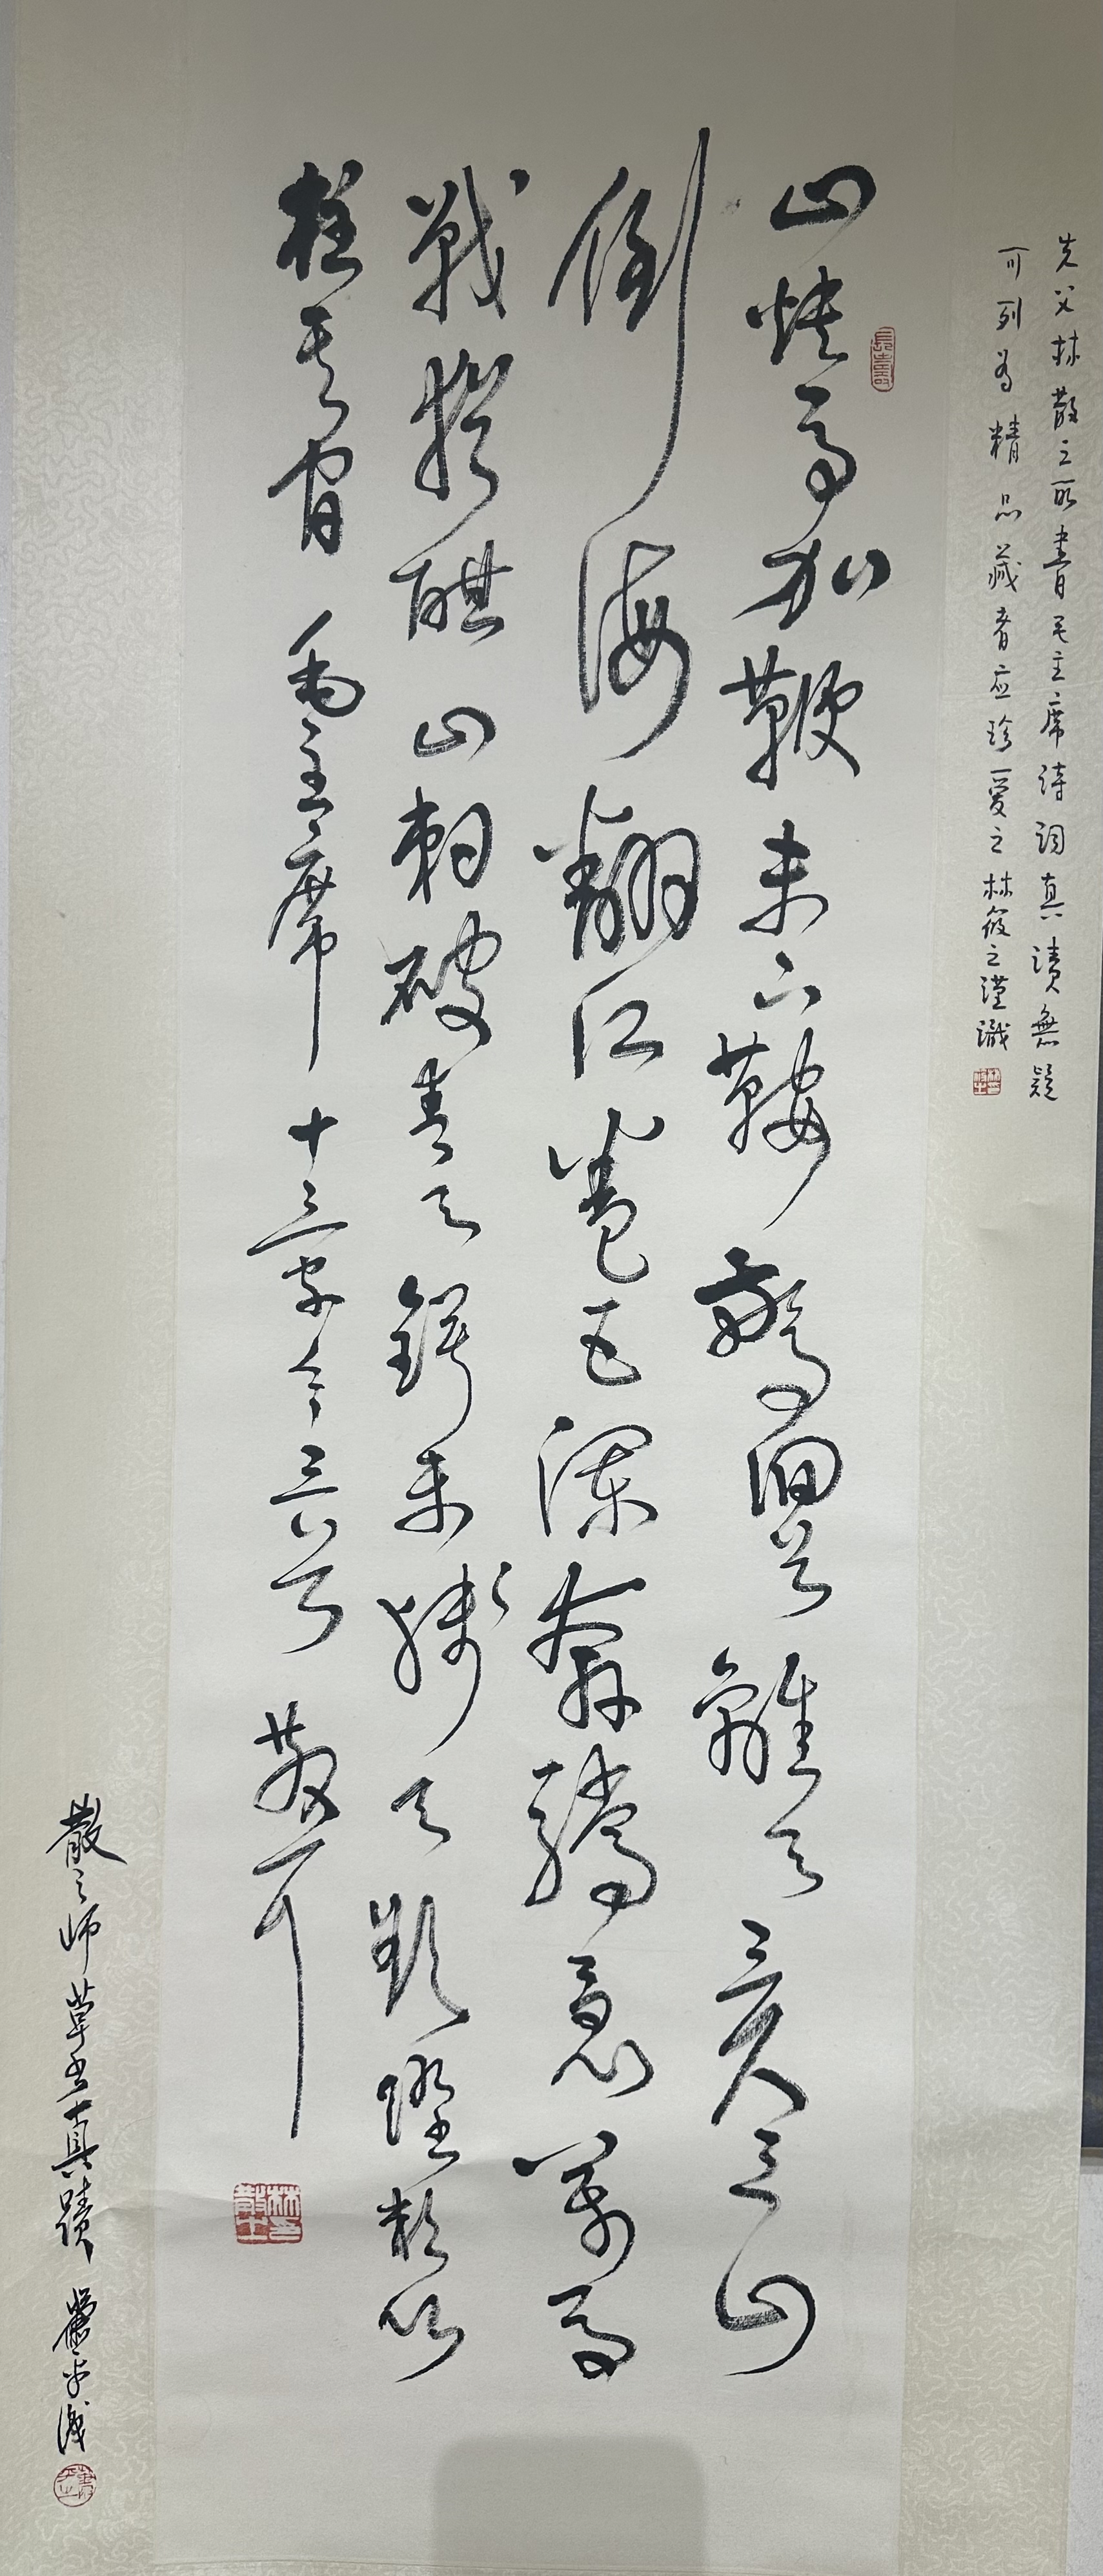 先父林散之所書毛主席诗词真蹟無疑
可列為精品藏者应珍爱之林筱之谨識
山快馬加鞭未下鞍驚回首離天三尺三山
倒海翻江卷巨瀾奔騰急萬馬
戰猶酣山刺破青天鍔未殘天欲墜賴以
柱其間 毛主席十六字令三首 散耳
散之师草书真蹟
長壽
林散之